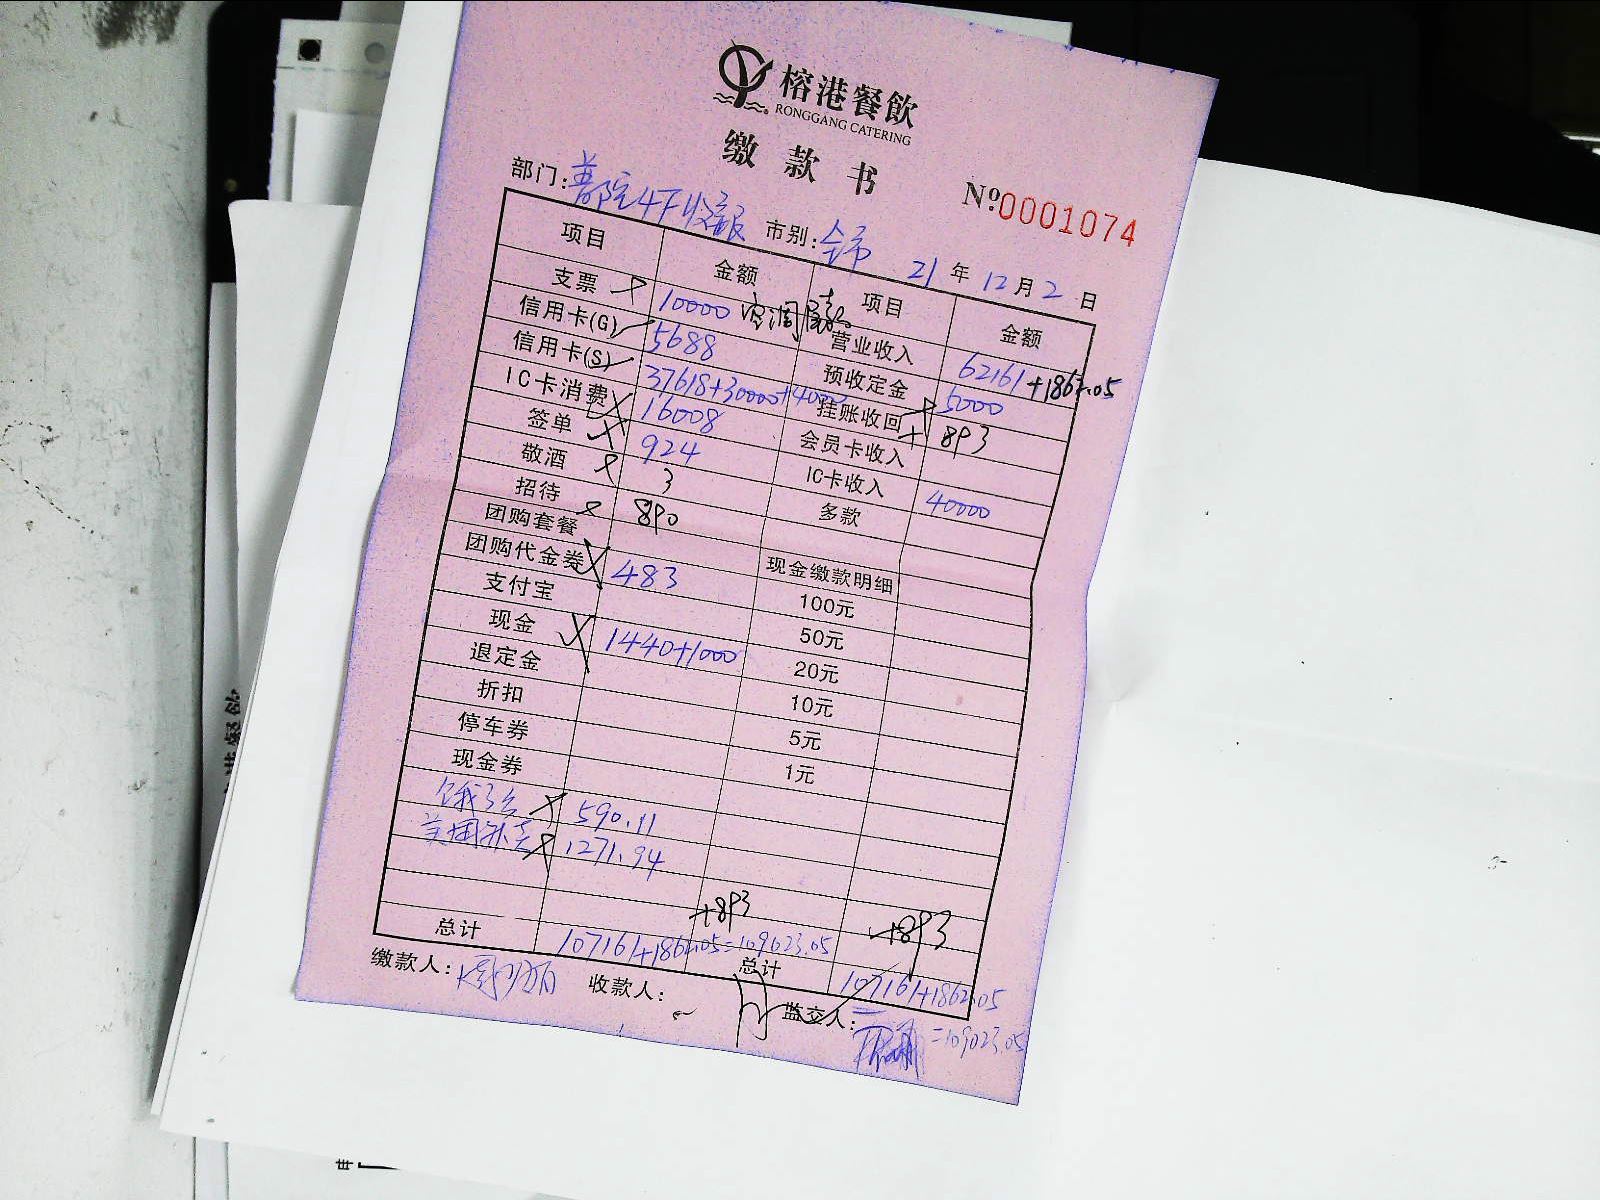 榕港餐飲
RONGGANG CATERING
缴款书
部门: 4F收银 市别: 全市 21年12月2日
Nº0001074
项目 金额 项目 金额
支票 10000 营业收入 62161+1862.05
信用卡(G) 5688 预收定金 5000
信用卡(S) 37618+30000+40000 挂账收回 +893
IC卡消费 16008 会员卡收入
签单 924 IC卡收入 40000
敬酒 3 多款
招待 890
团购套餐 现金缴款明细
团购代金券 483 100元
支付宝 50元
现金 1440+1000 20元
退定金 10元
折扣 5元
停车券 1元
现金券
饿了么 590.11
美团外卖 1271.94
+893 +893
总计 107161+1862.05=109023.05 总计 107161+1862.05
=109023.05
缴款人: 收款人: 监交人: